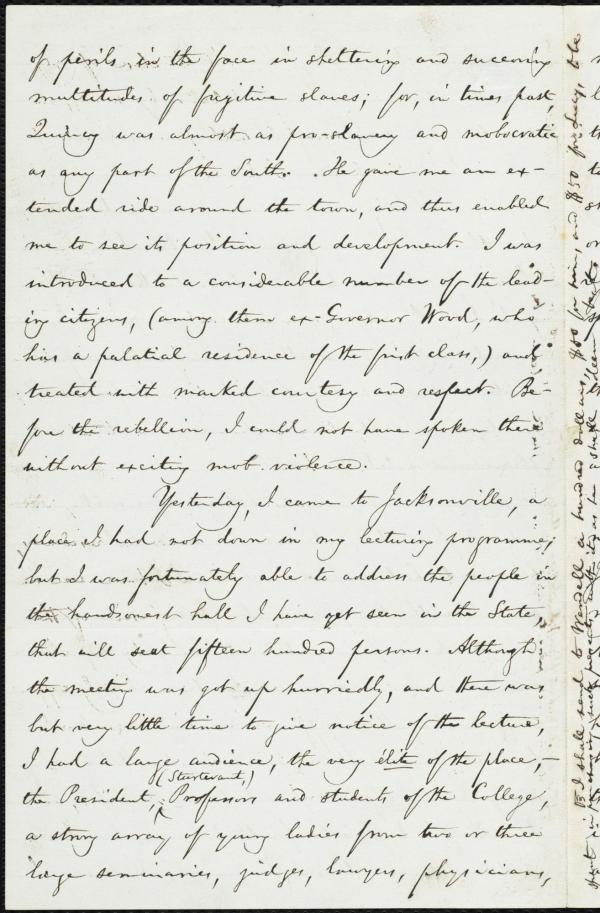 of perils in the face in sheltering and succoring
multitudes of fugitive slaves; for, in times past,
Quincy was almost as pro-slavery and mobocratic
as any part of the South. He gave me an ex-
tended ride around the town, and thus enabled
me to see its position and development. I was
introduced to a considerable number of the lead-
ing citizens, (among them ex-Governor Wood, who
has a palatial residence of the first class,) and
treated with marked courtesy and respect. Be-
fore the rebellion, I could not have spoken there
without exciting mob violence.
Yesterday, I came to Jacksonville, a
place I had not down in my lecturing programme;
but I was fortunately able to address the people in
the handsomest hall I have yet seen in the State,
that will seat fifteen hundred persons. Although
the meeting was got up hurriedly, and there was
but very little time to give notice of the lecture,
I had a large audience, the very élite of the place,—
the President, (Sturtevant,) Professors and students of the College,
a strong array of young ladies from two or three
large seminaries, judges, lawyers, physicians,
I shall send to Wendell a hundred dollars, $50 for him, and $50 for Lucy, to be